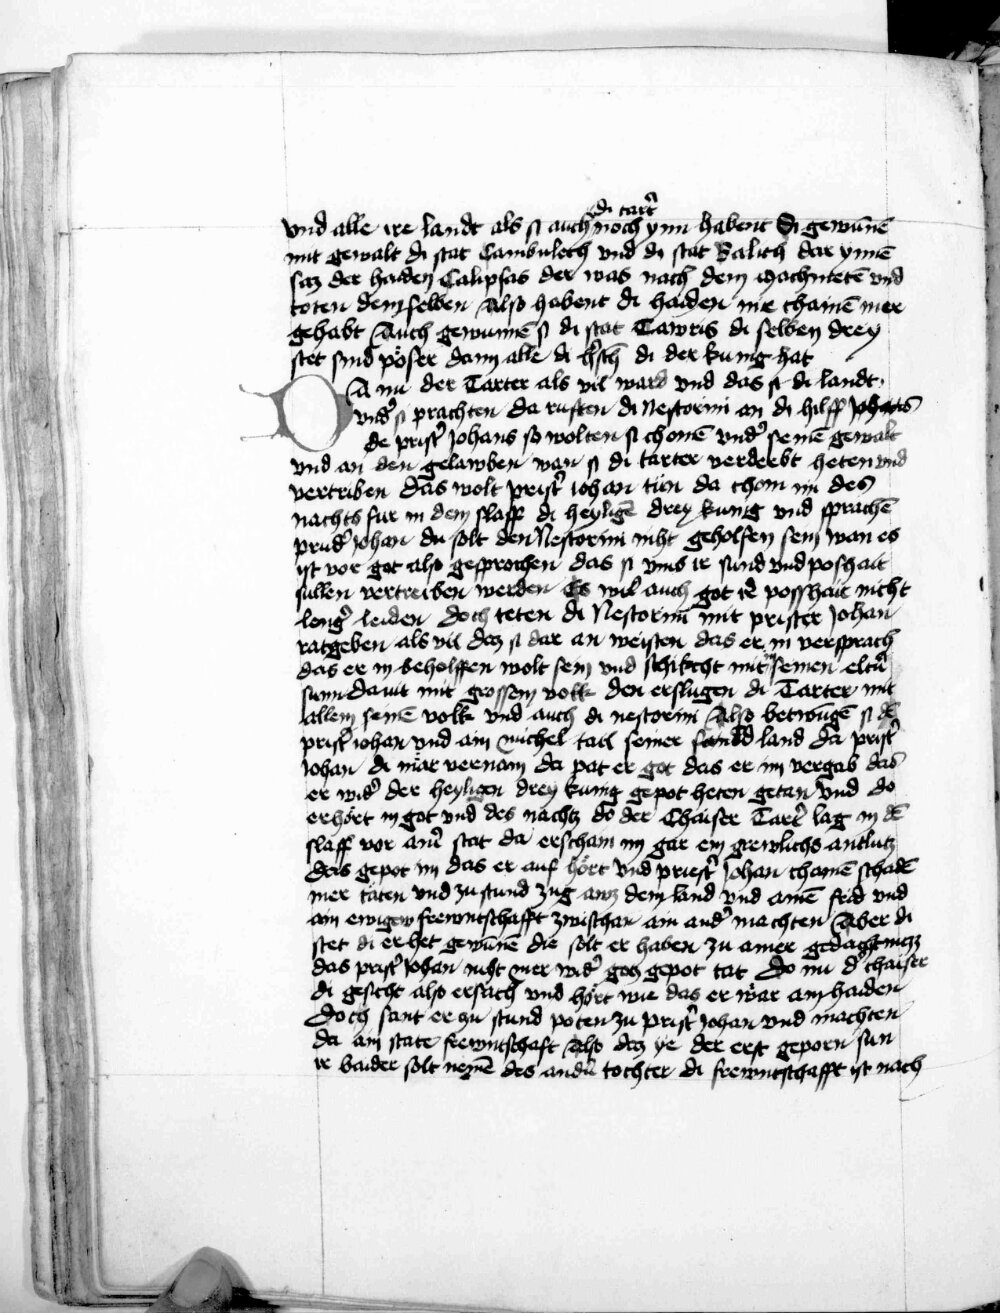 di tartˀ
vnd alle ire landt als si auch noch ynn habent Si gewūnē
mit gewalt di stat Cambulech vnd di stat Balich dar ynne
saz der haiden Calipfas der was nach dem machmetē vnd
toten den selben Also habent di haiden nie chainē mer
gehabt Auch gewunnē si di stat Tawris di selben drey
stet sind pöser dann alle di di der kunig hat
DA nu der Tarter als vil ward vnd das si di landt
vndˀ si prachten da rufften di Nestorini an di hilff Johans
de pristˀ Johans so wolten si chomē vndˀ seinē gewalt
vnd an den gelawben wan si di tarter verderbt heten vnd
vertriben das wolt pristˀ iohan tün da chom im des
nachts fur in dem slaff di heyligē drey kunig vnd sprachē
prudˀ Johan du solt den Nestorini niht geholfen sein wan es
ist vor got also gesprochen das si vmb ir sund vnd poshait
sullen vertreiben werden Es wil auch got ir posshait nicht
lengˀ leiden doch teten di Nestorini mit prister Johan
ratgeben als vil daz si dar an weisten das er in versprach
das er in beholffen wolt sein vnd schikcht mit seinen eltˀn
sun dauit mit grossem volk den erslugen di Tarter mit
allem seinē volk vnd auch di nestorini Also betwungē si dē
pristˀ iohan vnd ain michel tail seiner land da pristˀ
Johan di mär vernam da pat er got das er im vergab das
er widˀ der heyligen drey kunig gepot heten getan vnd do
erhört in got vnd des nachtz do der Chaiser Tartˀ lag in dē
slaff vor ainˀ stat da erschain im gar ein grewlichs antlutz
das gepot im das er auf hört vnd priestˀ Johan chainē schadē
mer täten vnd zu stund zug auz dem land vnd ainē frid vnd
ain ewigew frewntschafft zwischan ain andˀ machten Aber di
stet di er het gewūnē die solt er haben zu ainer gedachtnuzz
das pristˀ Johan niht mer widˀ gotz gepot tat Do nu dˀ chaiser
di gesicht also ersach vnd hört wie das er wär ain haiden
doch sant er zu stund poten zu pristˀ Johan vnd machten
da ain state frewntschaft Also daz ye der erst geporn sun
ir baider solt nemē des andˀn tochter di frewntschafft ist nach